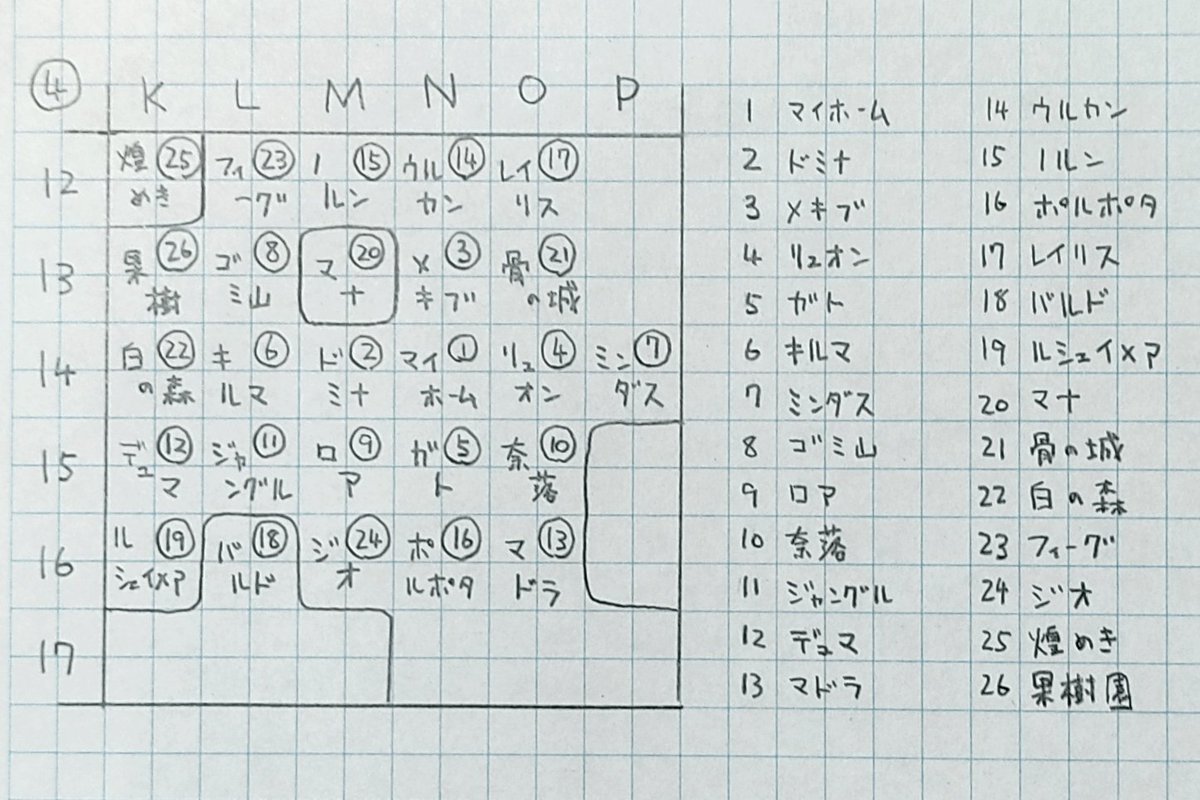 ④ K L M N O P
12 煌めき㉕ フィーグ㉓ ノルン⑮ ウルカン⑭ レイリス⑰
13 果樹㉖ ゴミ山⑧ マナ⑳ メキブ③ 骨の城㉑
14 白の森㉒ キルマ⑥ ドミナ② マイホーム① リュオン④ ミンダス⑦
15 デュマ⑫ ジャングル⑪ ロア⑨ ガト⑤ 奈落⑩
16 ルシェイメア⑲ バルド⑱ ジオ㉔ ポルポタ⑯ マドラ⑬
17
1 マイホーム
2 ドミナ
3 メキブ
4 リュオン
5 ガト
6 キルマ
7 ミンダス
8 ゴミ山
9 ロア
10 奈落
11 ジャングル
12 デュマ
13 マドラ
14 ウルカン
15 ノルン
16 ポルポタ
17 レイリス
18 バルド
19 ルシェイメア
20 マナ
21 骨の城
22 白の森
23 フィーグ
24 ジオ
25 煌めき
26 果樹園